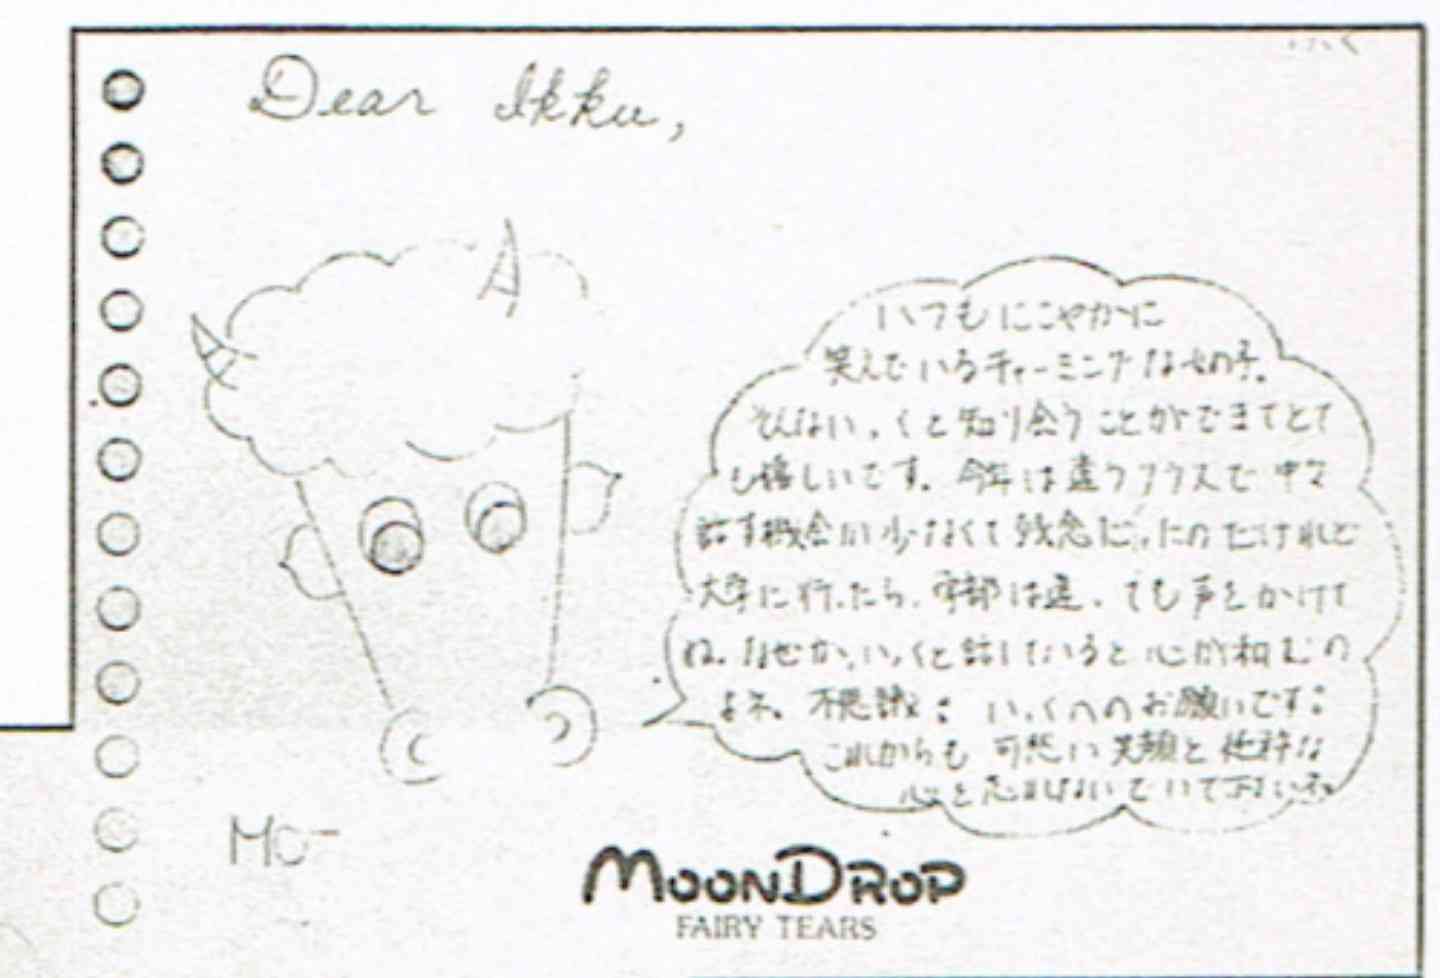 Dear Ikku,
いつもにこやかに
笑んでいるチャーミングな女の子。
そんないっくと知り会うことができてとて
も嬉しいです。今年は違うクラスで中々
話す機会が少なくて残念だったのだけれど
大学に行ったら、学部は違っても声をかけて
ね。なぜか、いっくと話していると心が和むの
よネ。不思議: いっくへのお願いです:
これからも 可愛い笑顔と 純粋な
心を忘れないでいて下さいネ
Mo-
MOONDROP
FAIRY TEARS